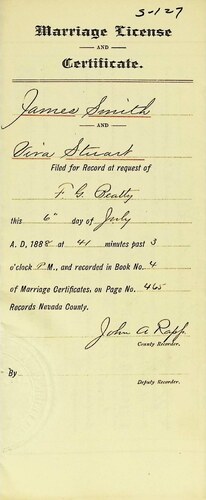 S-127
Marriage License
AND
Certificate.
James Smith
AND
Viva Stuart
Filed for Record at request of
F. G. Beatty
this 6" day of July
A. D. 1888 at 41 minutes past 3
o'clock P.M., and recorded in Book No. 4
of Marriage Certificates, on Page No. 465
Records Nevada County.
John A Rapp
County Recorder.
By
Deputy Recorder.